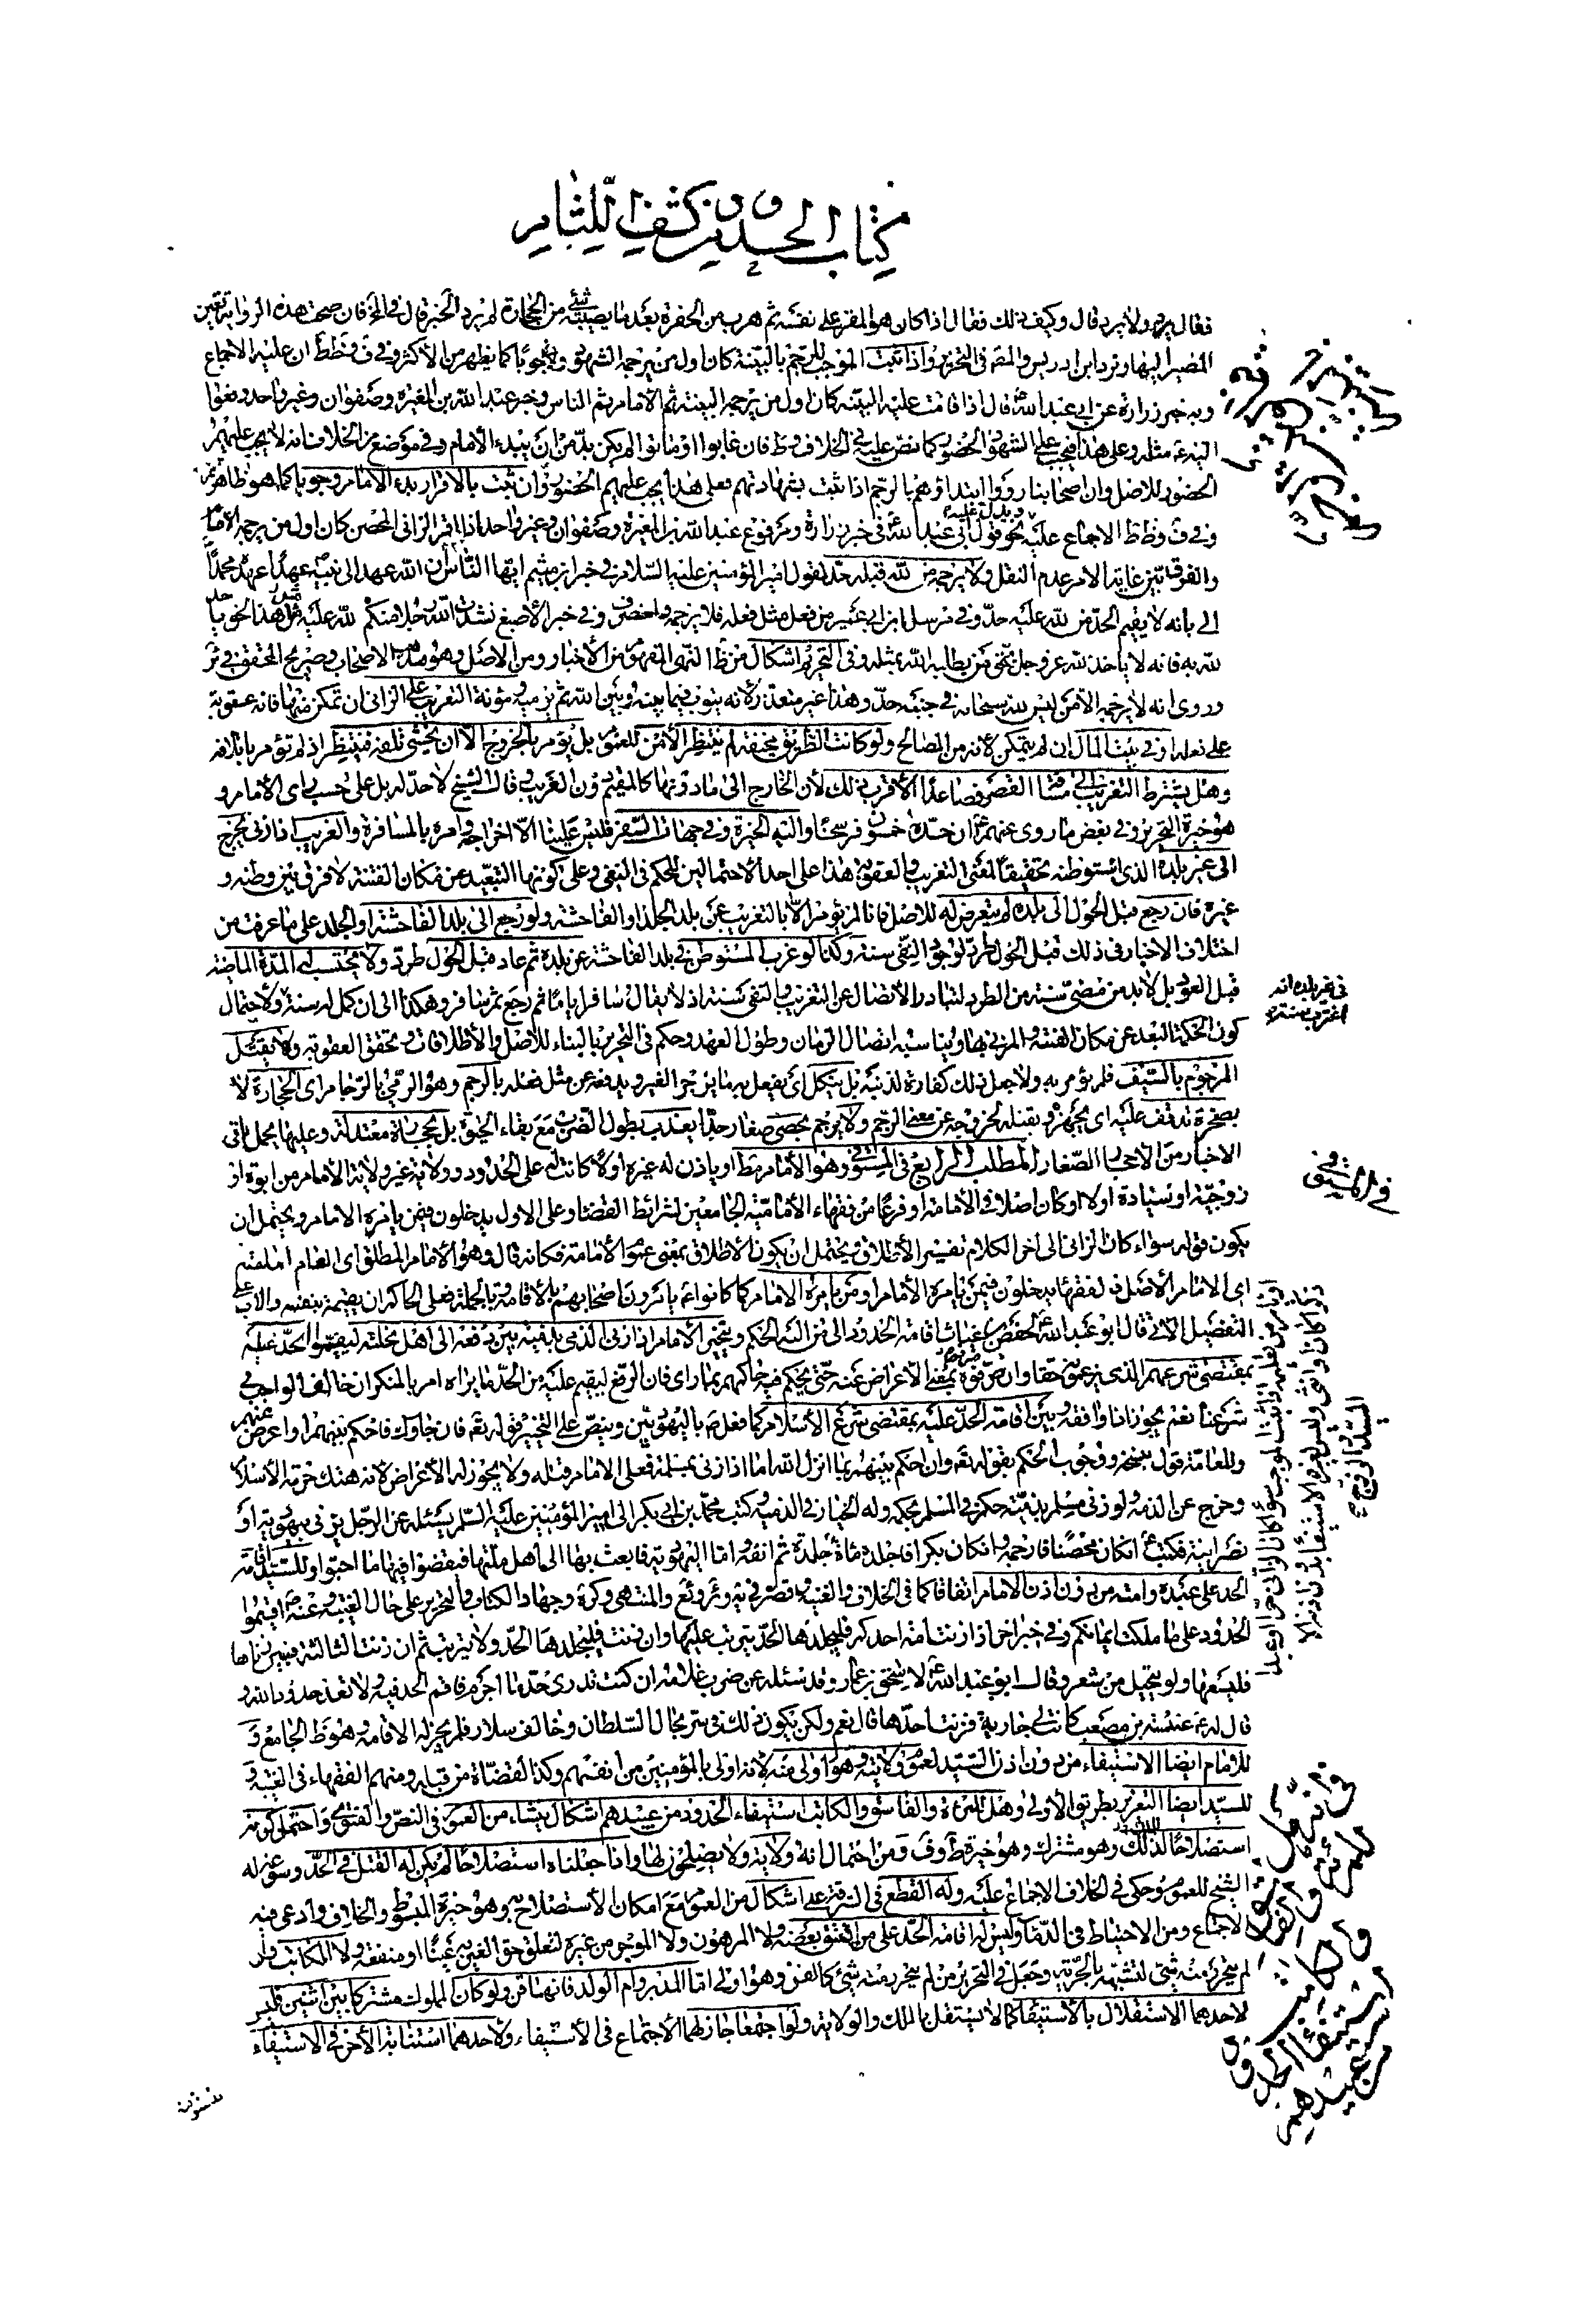 كتاب الحدود من كشف اللثام
فقال يرد ولا يرد قال وكيف ذلك فقال اذا كان هو المقر على نفسه ثم هرب من الحفرة بعد ما يصيبه شئ من الحجارة لم يرد الخبر قال في فان صحت هذه الرواية تعين
المصير اليها وتردد ابن ادريس والمصنف في التحرير واذا ثبت الموجب للرجم بالبينة كان اول من يرجمه الشهود وجوبا كما يظهر من الاكثر وفي ف وظ ط ان عليه الاجماع
وبه خبر زرارة عن ابي عبد الله قال اذا قامت عليه البينة كان اول من يرجمه البينة ثم الامام ثم الناس وخبر عبد الله بن المغيرة وصفوان وغير واحد رفعوا
اليه مثله وعلى هذا فيجب على الشهود الحضور كما نص عليه في الخلاف و ط فان غابوا او ماتوا لم يكن بد من ان يبدء الامام وفي موضع من الخلاف انه لا يجب عليهم
الحضور للاصل وان اصحابنا رووا ابتداؤهم بالرجم اذا ثبت بشهادتهم فعلى هذا يجب عليهم الحضور وان ثبت بالاقرار بدء الامام وجوبا كما هو ظاهر
وفي ف وظ ط الاجماع عليه نحو قول ابي عبد الله في خبر زرارة ومرفوع عبد الله بن المغيرة وصفوان وغير واحد اذا اقر الزاني المحصن كان اول من يرجمه الامام
لا يرجمه من لله قبله حد لقول امير المؤمنين عليه السلام في خبر ابن ميثم ايها الناس ان الله عهد الى نبيه عهدا عهده محمد
الي بانه لا يقيم الحد من لله عليه حد وفي مرسل ابن ابي عمير من فعل مثل فعله فلا يرجمه ولينصرف وفي خبر الاصبغ نشدت الله رجلا منكم لله عليه مثل هذا الحق
لله به فانه لا ياخذ لله عز وجل بحق من يطلبه الله بمثله وفي التحريم اشكال من ظ النهي المفهوم من الاخبار ومن الاصل وهو مذهب الاصحاب وصريح المحقق في
وروى انه لا يرجمه الا من ليس لله سبحانه في جنبه حد وهذا غير متعذر لانه يتوب فيما بينه وبين الله ثم يرميه ومؤنة التغريب على الزاني ان تمكن منها فانه عقوبة
على فعله او في بيت المال ان لم يتمكن لانه من المصالح ولو كانت الطريق مخيفة لم ينتظر الامن للعموم بل يؤمر بالخروج الا ان يخشى تلفه فينتظر اذ لم نؤمر باتلافه
وهل يشترط التغريب الى مسافة القصر فصاعدا الاقرب ذلك لان الخارج الى ما دونها كالمقيم دون الغريب وقال الشيخ لا حد له بل على حسب راى الامام و
هو خيرة التحرير وفي بعض ما روى عنهم ان حده خمسون فرسخا واليه الخيرة في جهات السفر فليس علينا الا اخراجه وامره بالمسافرة والغريب اذا زنى يخرج
الى غير بلده الذي استوطنه تحقيقا لمعنى التغريب والعقوبة هذا على احد الاحتمالين للحكم في النفي وعلى كونها التبعيد عن مكان الفتنة لا فرق بين وطنه و
غيره فان رجع قبل الحول الى بلده لم يتعرض له للاصل فانا لم نؤمر الا بالتغريب عن بلد الجلد او الفاحشة ولو رجع الى بلد الفاحشة او الجلد على ما عرفت من
اختلاف الاخبار في ذلك قبل الحول طرد لوجوب النفي سنة وكذا لو غرب المستوطن في بلد الفاحشة عن بلده ثم عاد قبل الحول طرد ولا يحتسب المدة الماضية
قبل العود بل لا بد من مضي سنة من الطرد لتبادر الاتصال عن التغريب والنفي سنة اذ لا يقال سافر اياما ثم رجع ثم سافر وهكذا الى ان كمل له سنة ولاحتمال
كون الحكمة البعد عن مكان الفتنة والمزني بها ويناسبه اتصال الزمان وطول العهد وحكم في التحرير بالبناء للاصل والاطلاق وتحقق العقوبة ولا يقتل
المرجوم بالسيف فلم يؤمر به ولا جعل ذلك كفارة لذنبه بل ينكل اى يفعل به ما يزجر الغير ويدفعه عن مثل فعله بالرجم وهو الرمي بالرجام اى الحجارة لا
بصخرة تدفف عليه اى تجهز وبقتله لخروجه عن معنى الرجم ولا يرجم بحصى صغار جدا يعذب بطول الضرب مع بقاء الحيوة بل بحجارة معتدلة وعليها يحمل باقي
الاخبار من الاحجار الصغار المطلب الرابع في المستوفي وهو الامام مط او ياذن له غيره او لا كانت له على الحدود ولاية غير ولاية الامام من ابوة او
زوجية او سيادة او لا او كان اصلا في الامامة او فرعا من فقهاء الامامية الجامعين لشرائط القضاء وعلى الاول يدخلون فيمن يامره الامام ويحتمل ان
يكون قوله سواء كان الزاني الى اخر الكلام تفسير الاطلاق ويحتمل ان يكون الاطلاق بمعنى عموم الامامة فكانه قال وهو الامام المطلق اى العام امامته
اى الامام الاصل فالفقهاء يدخلون فيمن يامره الامام او من يامره الامام كما كانوا يامرون اصحابهم بالاقامة وبالجملة فعلى الحاكم ان يقيمه بنفسه
التفصيل الاتي قال ابو عبد الله لحفص بن غياث اقامة الحدود الى من اليه الحكم ويتخير الامام اذا زنى الذمي بذمية بين دفعه الى اهل نحلته ليقيموا الحد عليه
بمقتضى شرعهم الذي يزعمونه حقا وان حرفوه بمعنى الاعراض عنه حتى يحكم فيه حاكمهم بما راى فان الرفع ليقيم عليه من الحد ما يراه امر بالمنكر ان خالف الواجب في
شرعنا نعم يجوز اذا وافقه وبين اقامة الحد عليه بمقتضى شرع الاسلام كما فعل ص باليهوديين وينص على التخيير قوله تعالى فان جاوك فاحكم بينهم او اعرض عنهم
وللعامة قول بنسخه ووجوب الحكم بقوله تع وان احكم بينهم بما انزل الله اما اذا زنى بمسلمة فعلى الامام قتله ولا يجوز له الاعراض لانه هتك حرمة الاسلام
وخرج عن الذمة ولو زنى مسلم بذمية حكم في المسلم بحكمه وله الخيار في الذمية وكتب محمد بن ابي بكر الى امير المؤمنين عليه السلم يسئله عن الرجل يزني بيهودية او
نصرانية فكتب ان كان محصنا فارجمه وان كان بكرا فاجلده مائة جلدة ثم انفه واما اليهودية فابعث بها الى اهل ملتها فيقضوا فيها ما احبوا وللسيد اقامة
الحد على عبده وامته من دون اذن الامام اتفاقا كما في الخلاف والغنية وقصره في المنتهى وكرة وجهاد الكتاب والتحرير على حال الغيبة وعنه ص اقيموا
الحدود على ما ملكت ايمانكم وفي خبر اخر اذا زنت امة احدكم فليجلدها الحد ولا يثرب عليها وان زنت فليجلدها الحد ولا يثرب ثم ان زنت الثالثة فتبين زناها
فليبعها ولو بحبل من شعر وقال ابو عبد الله لاسحق بن عمار وقد سئله عن ضرب غلامه ان كنت تدري حد ما اجرم فاقم الحد فيه ولا تعد حدود الله و
قال له عنبسة بن مصعب كانت لي جارية فزنت احدها قال نعم ولكن يكون ذلك في سر لحال السلطان وخالف سلار فلم يجز له الاقامة وهو ظ الجامع و
للامام ايضا الاستيفاء من دون اذن السيد لعموم ولايته وهو اولى منه لانه اولى بالمؤمنين من انفسهم وكذا القضاة من قبله ومنهم الفقهاء في الغيبة و
للسيد ايضا التعزير بطريق الاولى وهل للمرءة والفاسق والمكاتب استيفاء الحدود من عبيدهم اشكال ينشاء من العموم في النص والفتوى واحتمال كونه
استصلاحا للملك وهو مشترك وهو خيرة ط و ف ومن احتمال انه ولاية ولا يصلحون لها واذا جعلناه استصلاحا لم يكن له القتل في الحد وسوغه له
الشيخ للعموم وحكى في الخلاف الاجماع عليه وله القطع في السرقة على اشكال من العموم مع امكان الاستصلاح به وهو خيرة المبسوط والخلاف وادعى فيه
الاجماع ومن الاحتياط في الدماء وليس له اقامة الحد على من انعتق بعضه ولا المرهون ولا الموجر من غيره لتعلق حق الغير به عينا او منفعة ولا المكاتب وان
لم يتحرر منه شئ لتشبثه بالحرية وجعل في التحرير من لم يتحرر منه شئ كالقن وهو اولى اما المدبر وام الولد فانهما قن ولو كان المملوك مشتركا بين اثنين فليس
لاحدهما الاستقلال بالاستيفاء كما لا يستقل بالملك والولاية ولو اجتمعا جاز لهما الاجتماع في الاستيفاء ولاحدهما استنابة الاخر في الاستيفاء
في غير بلده انه
في المستوفي
من عبيدهم